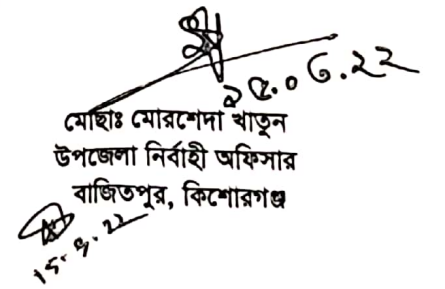 ২৫.০৬.২২
মোছাঃ মোরশেদা খাতুন
উপজেলা নির্বাহী অফিসার
বাজিতপুর, কিশোরগঞ্জ